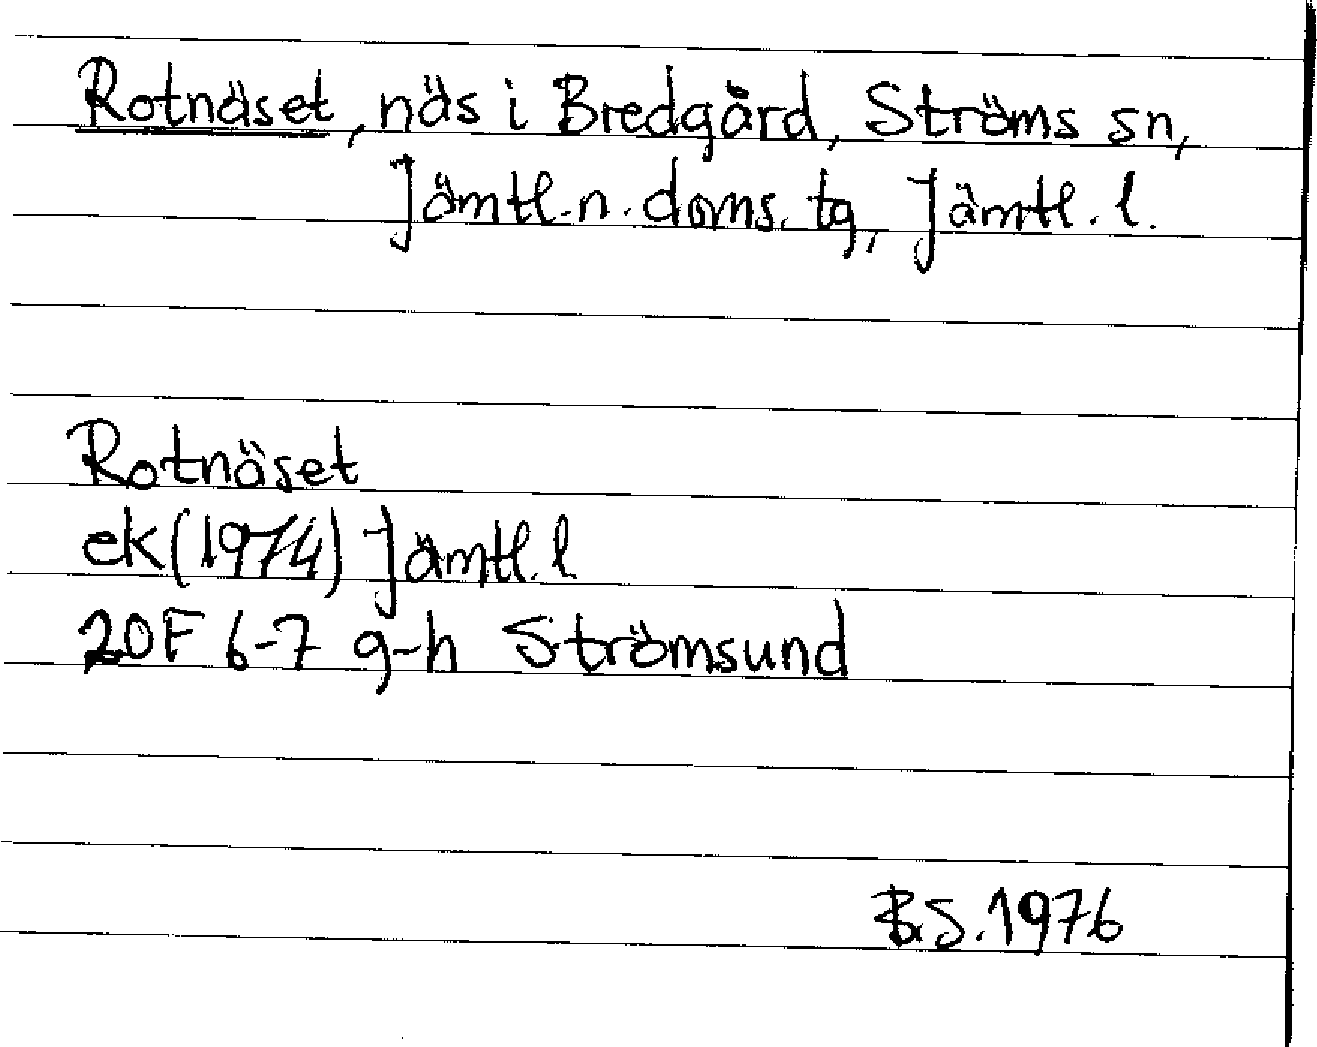 Rotnäset, näs i Bredgård, Ströms sn,
Jämtl.n. doms. tg, Jämtl. l.
Rotnäset
ek(1974) Jämtl. l
20F 6-7 g-h Strömsund
B.S. 1976